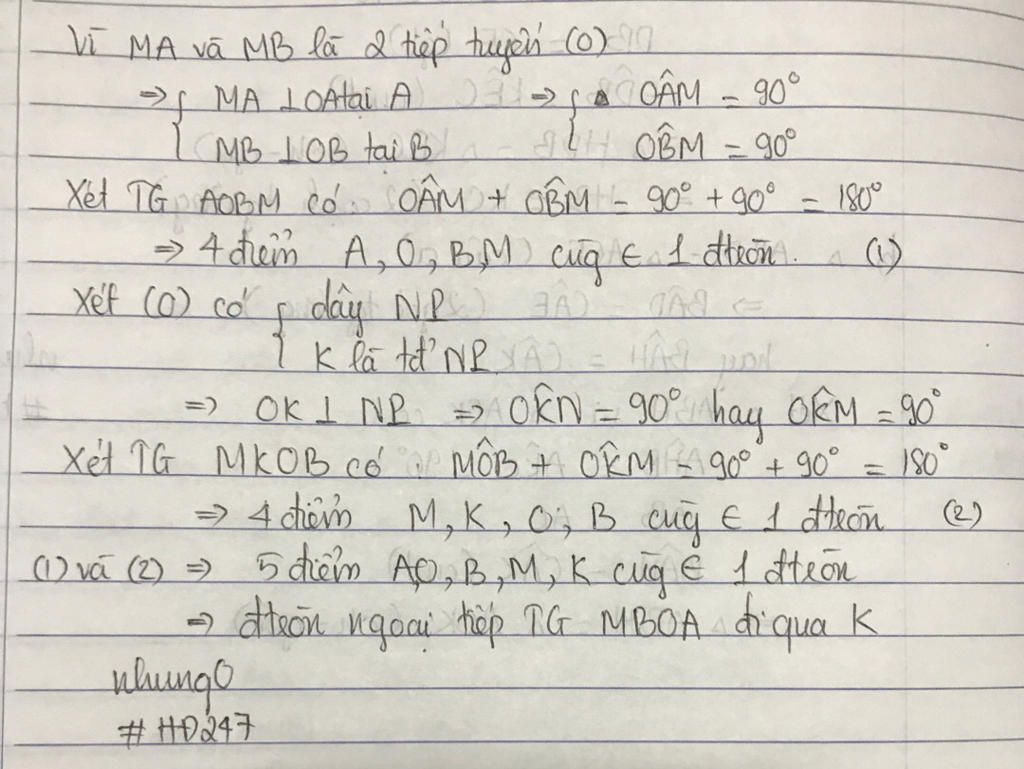 Vì MA và MB là 2 tiếp tuyến (O)
=> { MA ⊥ OA tại A => { OÂM = 90°
MB ⊥ OB tại B OB̂M = 90°
Xét TG AOBM có: OÂM + OB̂M = 90° + 90° = 180°
=> 4 điểm A, O, B, M cùg ∈ 1 đtròn. (1)
Xét (O) có { dây NP
K là tđ NP
=> OK ⊥ NP => OK̂N = 90° hay OK̂M = 90°
Xét TG MKOB có: MÔB + OK̂M = 90° + 90° = 180°
=> 4 điểm M, K, O, B cùg ∈ 1 đtròn (2)
(1) và (2) => 5 điểm A, O, B, M, K cùg ∈ 1 đtròn
=> đtròn ngoại tiếp TG MBOA đi qua K
nhungO
# HĐ247